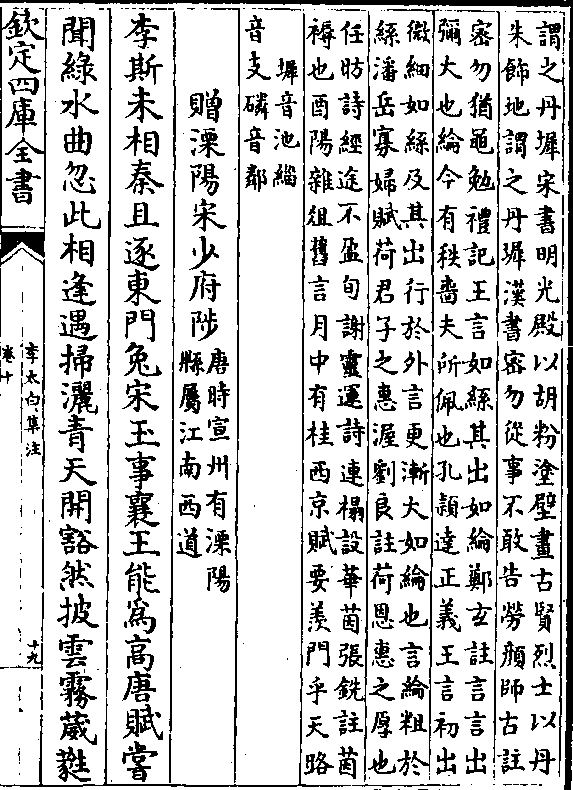 謂之丹墀宋書明光殿以胡粉塗壁畫古賢烈士以丹
朱飾地謂之丹墀漢書密勿從事不敢告勞顔師古註
密勿猶黽勉禮記王言如絲其出如綸鄭玄註言言出
彌大也綸今有秩嗇夫所佩也孔頴達正義王言初出
微細如絲及其出行於外言更漸大如綸也言綸粗於
絲潘岳寡婦賦荷君子之惠渥劉良註荷恩惠之厚也
任昉詩經途不盈旬謝靈運詩連榻設華茵張銑註茵
褥也酉陽雜俎舊言月中有桂西京賦要羨門乎天路
墀音池緇
音支磷音鄰
贈溧陽宋少府陟
唐時宣州有溧陽
縣屬江南西道
李斯未相秦且逐東門兔宋玉事襄王能為高唐賦嘗
聞綠水曲忽此相逢遇掃灑青天開豁然披雲霧葳蕤
欽定四庫全書
李太白集注
卷十
十九